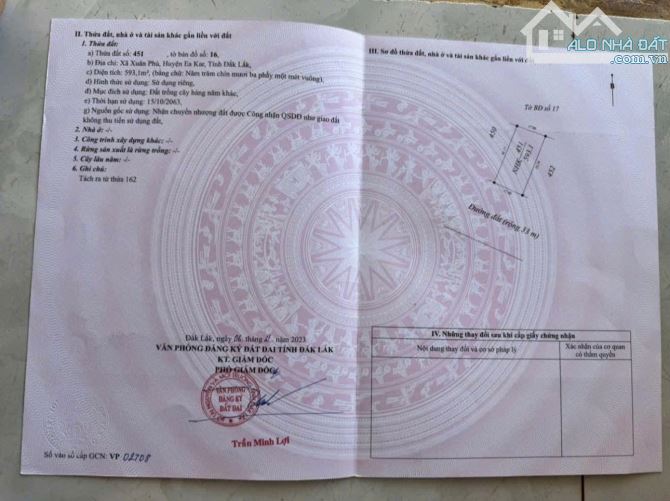 II. Thửa đất, nhà ở và tài sản khác gắn liền với đất
1. Thửa đất:
a) Thửa đất số: 451, tờ bản đồ số: 16,
b) Địa chỉ: Xã Xuân Phú, Huyện Ea Kar, Tỉnh Đắk Lắk,
c) Diện tích: 593,1m², (bằng chữ: Năm trăm chín mươi ba phẩy một mét vuông)
d) Hình thức sử dụng: Sử dụng riêng,
đ) Mục đích sử dụng: Đất trồng cây hàng năm khác,
e) Thời hạn sử dụng: 15/10/2063,
g) Nguồn gốc sử dụng: Nhận chuyển nhượng đất được Công nhận QSDĐ như giao đất
không thu tiền sử dụng đất,
2. Nhà ở: -/-
3. Công trình xây dựng khác: -/-
4. Rừng sản xuất là rừng trồng: -/-
5. Cây lâu năm: -/-
6. Ghi chú:
Tách ra từ thửa 162
Đắk Lắk, ngày 06 tháng năm 2023
VĂN PHÒNG ĐĂNG KÝ ĐẤT ĐAI TỈNH ĐẮK LẮK
KT. GIÁM ĐỐC
PHÓ GIÁM ĐỐC
VĂN PHÒNG
ĐĂNG KÝ
ĐẤT ĐAI
Trần Minh Lợi
Số vào sổ cấp GCN: VP 02708
III. Sơ đồ thửa đất, nhà ở và tài sản khác gắn liền với
B
Tờ BĐ số 17
450
451
NHK
593.1
452
Đường đất (rộng 33 m)
IV. Những thay đổi sau khi cấp giấy chứng nhận
Nội dung thay đổi và cơ sở pháp lý
Xác nhận của cơ quan
có thẩm quyền
ALO NHÀ ĐẤT